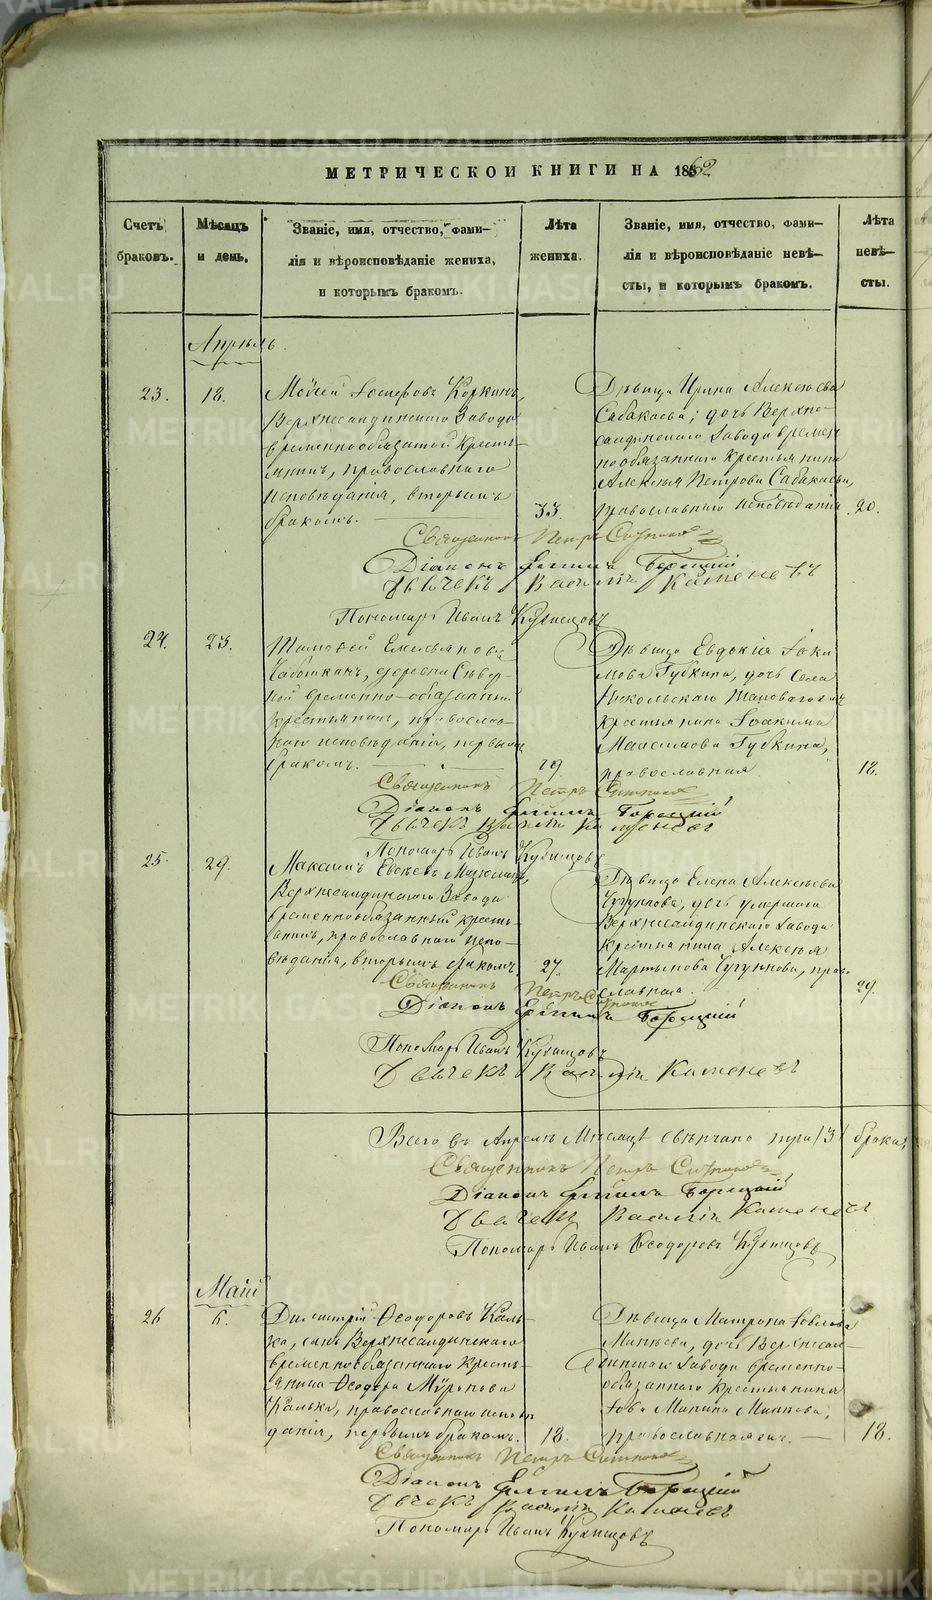 МЕТРИЧЕСКОЙ КНИГИ НА 1862
Счетъ
браковъ.
Мѣсяцъ
и день.
Званіе, имя, отчество, фами-
лія и вѣроисповѣданіе жениха,
и которымъ бракомъ.
Лѣта
жениха.
Званіе, имя, отчество, фами-
лія и вѣроисповѣданіе невѣ-
сты, и которымъ бракомъ.
Лѣта
невѣ-
сты.
Апрѣль.
23.
18.
Моисей Іосифовъ Коркинъ,
Верхнесалдинскаго Завода
временнообязатой Кресть-
янинъ, православнаго
исповѣданія, вторымъ
бракомъ.
33.
Дѣвица Ирина Алексѣева
Сабакаева; дочь Верхне-
салдинскаго Завода времен
нообязаннаго Крестьянина
Алексѣя Петрова Сабакаева,
православнаго исповѣданія
20.
Священникъ Петръ
Діаконъ
Дьячекъ Василій Каменевъ
Пономарь Иванъ Кузнецовъ
24.
23.
Тимофей Емельяновъ
деревни Сѣвер-
ной временно-обязанный
крестьянинъ, православ-
наго исповѣданія, первымъ
бракомъ.
19.
Дѣвица Евдокія Іоки-
мова Губкина, дочь Села
Никольскаго
Крестьянина Іоакима
Максимова Губкина,
православная.
18.
Священникъ Петръ
Діаконъ
Дьячекъ Василій Каменевъ
Пономарь Иванъ Кузнецовъ
25.
29.
Максимъ
Верхнесалдинскаго Завода
временнообязанный кресть-
янинъ, православнаго испо-
вѣданія, вторымъ бракомъ.
27.
Дѣвица Елена Алексѣева
Чугункова, дочь умершаго
Верхнесалдинскаго Завода
Крестьянина Алексѣя
Мартынова Чугункова, пра-
вославная.
29.
Священникъ Петръ
Діаконъ
Пономарь Иванъ Кузнецовъ
Дьячекъ Василій Каменевъ
Всего въ Апрѣлѣ Мѣсяцѣ свѣнчано три /3/ брака,
Священникъ Петръ
Діаконъ
Дьячекъ Василій Каменевъ
Пономарь Иванъ Ѳеодоровъ Кузнецовъ
Май
26
6.
Димитрій Ѳеодоровъ Каль-
ка, сынъ Верхнесалдинскаго
временнообязаннаго Кресть-
янина Ѳеодора
Калька, православнаго исповѣ
данія, первымъ бракомъ.
18.
Дѣвица Матрона Іовлева
Минѣева, дочь Верхнесал-
динскаго Завода временно-
обязаннаго Крестьянина
Іова
православная. —
18.
Священникъ Петръ
Діаконъ
Дьячекъ Василій Каменевъ
Пономарь Иванъ Кузнецовъ
METRIKI.GASO-URAL.RU